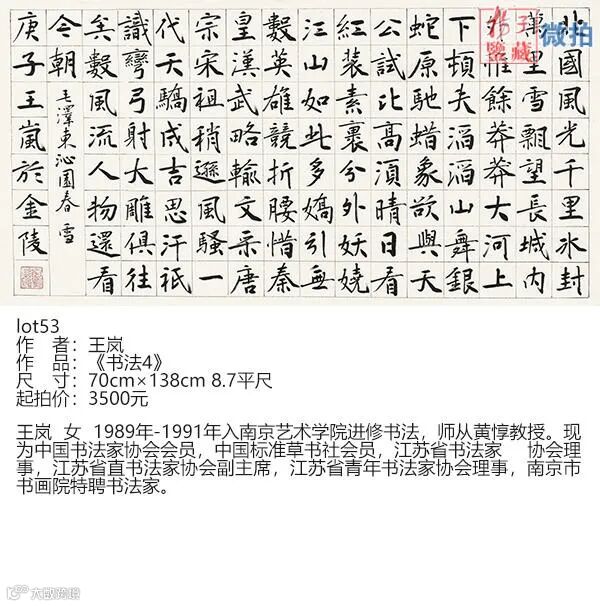 北國風光千里冰封
萬里雪飄望長城內
外惟餘莽莽大河上
下頓失滔滔山舞銀
蛇原馳蜡象欲與天
公試比高須晴日看
紅裝素裹分外妖嬈
江山如此多嬌引無
數英雄競折腰惜秦
皇漢武略輸文采唐
宗宋祖稍遜風騷一
代天驕成吉思汗祇
識彎弓射大雕俱往
矣數風流人物還看
今朝
毛澤東沁園春 雪
庚子王嵐於金陵
扬子
鉴藏
微拍
lot53
作 者：王岚
作 品：《书法4》
尺 寸：70cm×138cm 8.7平尺
起拍价：3500元
王岚 女 1989年-1991年入南京艺术学院进修书法，师从黄惇教授。现
为中国书法家协会会员，中国标准草书社会员，江苏省书法家 协会理
事，江苏省直书法家协会副主席，江苏省青年书法家协会理事，南京市
书画院特聘书法家。